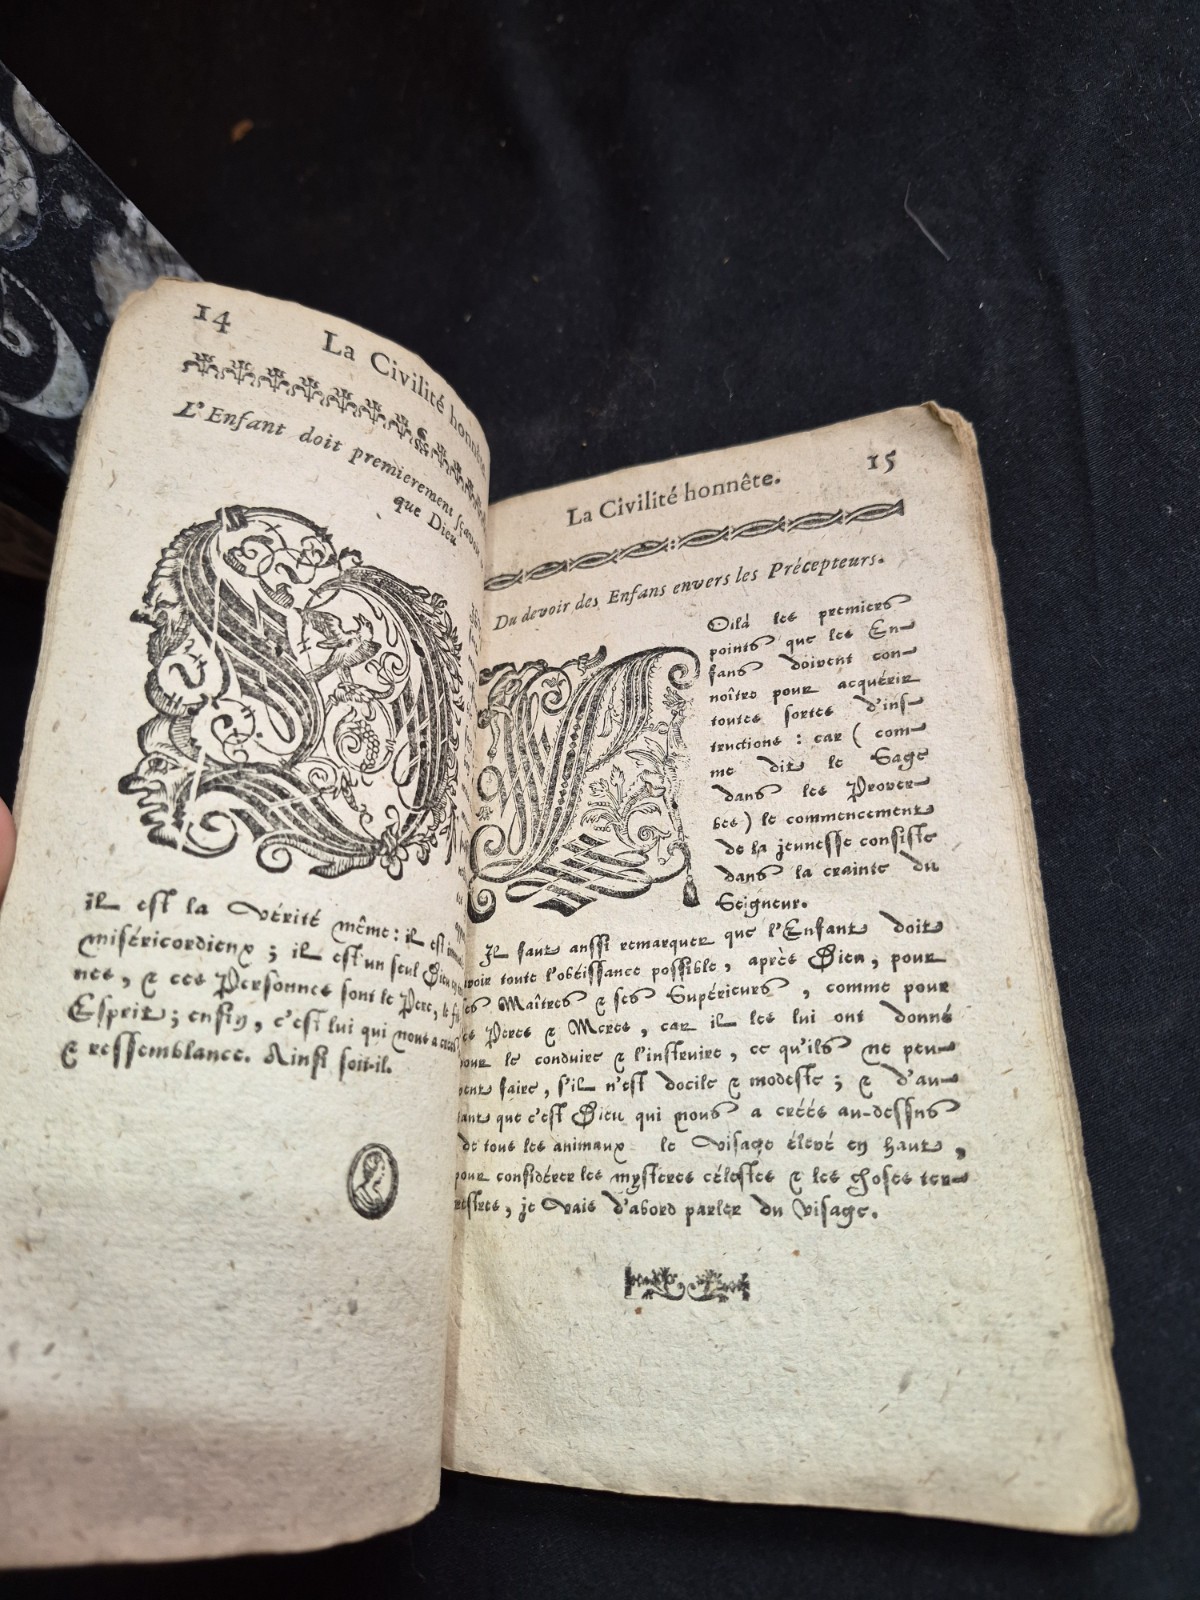 14
La Civilité honnête
L'Enfant doit premierement sçavoir
que Dieu
il est la vérité même : il est
miséricordieux ; il est un seul Dieu
nes, & ces Personnes sont le Pere, le
Esprit ; enfin, c'est lui qui nous a
& ressemblance. Ainsi soit-il.
La Civilité honnête. 15
Du devoir des Enfans envers les Précepteurs.
Voilà les premiers
points que les En-
fans doivent con-
noître pour acquérir
toutes sortes d'ins-
tructions : car ( com-
me dit le Sage
dans les Prover-
bes ) le commencement
de la jeunesse consiste
dans la crainte du
Seigneur.
Il faut aussi remarquer que l'Enfant doit
avoir toute l'obéissance possible, après Dieu, pour
ses Maîtres & ses Supérieurs, comme pour
ses Peres & Meres, car il les lui ont donné
pour le conduire & l'instruire, ce qu'ils ne peu-
vent faire, s'il n'est docile & modeste ; & d'au-
tant que c'est Dieu qui nous a créés au-dessus
de tous les animaux le visage élevé en haut,
pour considérer les mysteres célestes & les choses ter-
restres, je vais d'abord parler du visage.